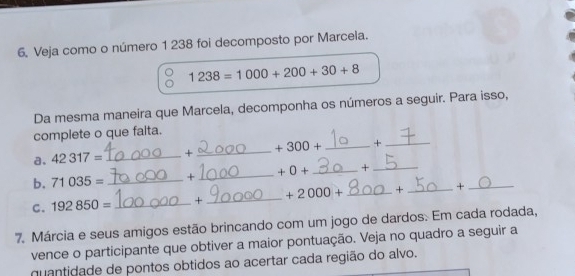 6. Veja como o número 1 238 foi decomposto por Marcela.
1 238 = 1 000 + 200 + 30 + 8
Da mesma maneira que Marcela, decomponha os números a seguir. Para isso,
complete o que falta.
a. 42 317 = 40 000 + 2 000 + 300 + 10 + 7
b. 71 035 = 70 000 + 1000 + 0 + 30 + 5
c. 192 850 = 100 000 + 90000 + 2 000 + 800 + 50 + 0
7. Márcia e seus amigos estão brincando com um jogo de dardos. Em cada rodada,
vence o participante que obtiver a maior pontuação. Veja no quadro a seguir a
quantidade de pontos obtidos ao acertar cada região do alvo.